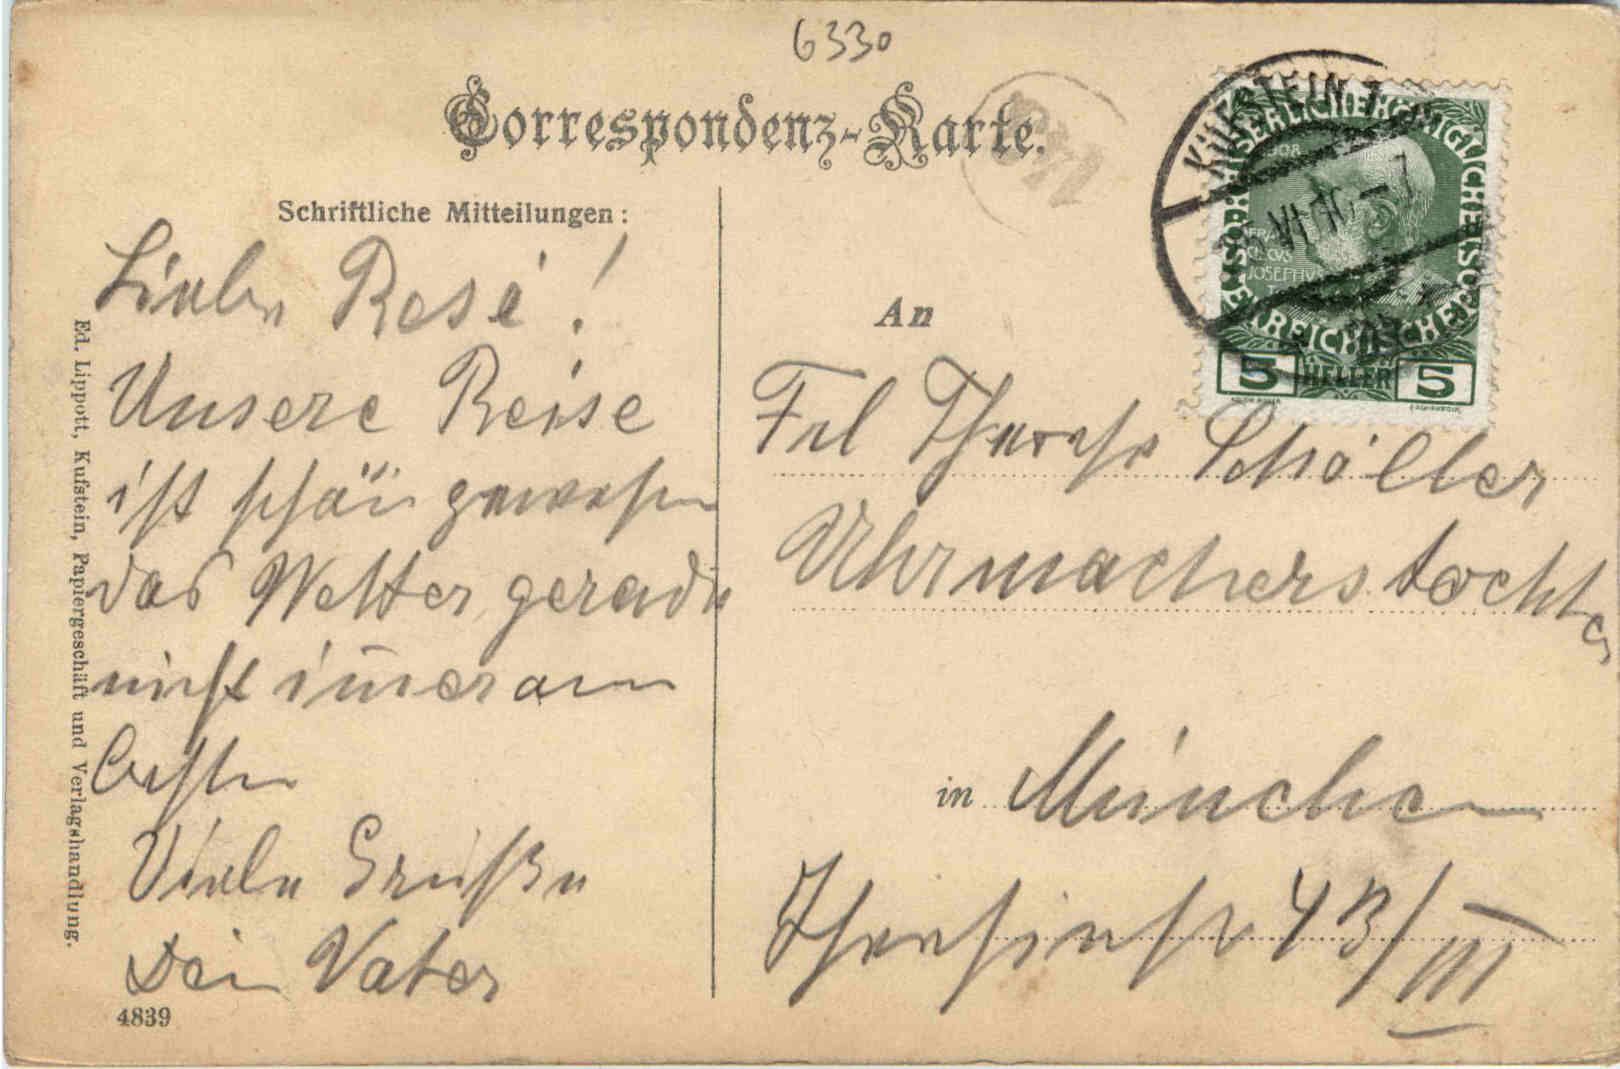 6330
Correspondenz-Karte.
Schriftliche Mitteilungen:
Liebe Resi!
Unsere Reise
ist schön gewesen
das Wetter gerade
nicht im̅er am
besten
Viele Grüße
Dein Vater
4839
Ed. Lippott, Kufstein, Papiergeschäft und Verlagshandlung.
KUFSTEIN
VI 10
KAISERLICHE KÖNIGLICHE
ÖSTERREICHISCHE
1908
JOSEPHVS
5 HELLER 5
An
Frl Therese Schöller
Uhrmacherstochter
in München
43/III